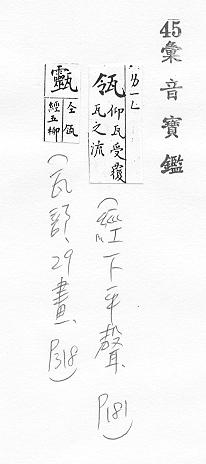 45彙音寶鑑
瓴 仰瓦受覆
瓦之流
(经下平聲、P181)
仝瓴
經五柳
(瓦部、29畫、P318)